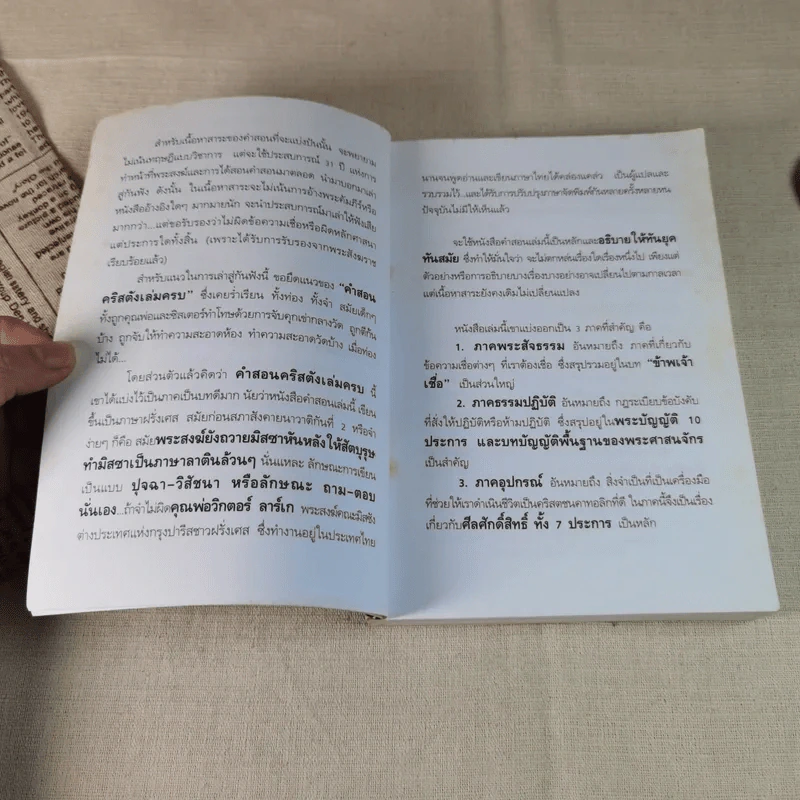 สำหรับเนื้อหาสาระของคำสอนที่จะแบ่งปันนั้น จะพยายาม
ไม่เน้นทฤษฎีแบบวิชาการ แต่จะใช้ประสบการณ์ 31 ปี แห่งการ
ทำหน้าที่พระสงฆ์และการได้สอนคำสอนมาตลอด นำมาบอกเล่า
สู่กันฟัง ดังนั้น ในเนื้อหาสาระจะไม่เน้นการอ้างพระคัมภีร์หรือ
หนังสืออ้างอิงใดๆ มากมายนัก จะนำประสบการณ์มาเล่าให้ฟังเสีย
มากกว่า...แต่ขอรับรองว่าไม่ผิดข้อความเชื่อหรือผิดหลักศาสนา
แต่ประการใดทั้งสิ้น (เพราะได้รับการรับรองจากพระสังฆราช
เรียบร้อยแล้ว)
สำหรับแนวในการเล่าสู่กันฟังนี้ ขอยึดแนวของ “คำสอน
คริสตังเล่มครบ” ซึ่งเคยร่ำเรียน ทั้งท่อง ทั้งจำ สมัยเด็กๆ
ทั้งถูกคุณพ่อและซิสเตอร์ทำโทษด้วยการจับคุกเข่ากลางวัด ถูกตีก้น
บ้าง ถูกจับให้ทำความสะอาดห้อง ทำความสะอาดวัดบ้าง เมื่อท่อง
ไม่ได้...
โดยส่วนตัวแล้วคิดว่า คำสอนคริสตังเล่มครบ นี้
เขาได้แบ่งไว้เป็นภาคเป็นบทดีมาก นัยว่าหนังสือคำสอนเล่มนี้ เขียน
ขึ้นเป็นภาษาฝรั่งเศส สมัยก่อนสภาสังคายนาวาติกันที่ 2 หรือจำ
ง่ายๆ ก็คือ สมัยพระสงฆ์ยังถวายมิสซาหันหลังให้สัตบุรุษ
ทำมิสซาเป็นภาษาลาตินล้วนๆ นั่นแหละ ลักษณะการเขียน
เป็นแบบ ปุจฉา-วิสัชนา หรือลักษณะ ถาม-ตอบ
นั่นเอง...ถ้าจำไม่ผิดคุณพ่อวิกตอร์ ลาร์เก พระสงฆ์คณะมิสซัง
ต่างประเทศแห่งกรุงปารีสชาวฝรั่งเศส ซึ่งทำงานอยู่ในประเทศไทย
นานจนพูดอ่านและเขียนภาษาไทยได้คล่องแคล่ว เป็นผู้แปลและ
รวบรวมไว้...และได้รับการปรับปรุงภาษาจัดพิมพ์กันหลายครั้งหลายหน
ปัจจุบันไม่มีให้เห็นแล้ว
จะใช้หนังสือคำสอนเล่มนี้เป็นหลักและอธิบายให้ทันยุค
ทันสมัย ซึ่งทำให้มั่นใจว่า จะไม่ตกหล่นเรื่องใดเรื่องหนึ่งไป เพียงแต่
ตัวอย่างหรือการอธิบายบางเรื่องบางอย่างอาจเปลี่ยนไปตามกาลเวลา
แต่เนื้อหาสาระยังคงเดิมไม่เปลี่ยนแปลง
หนังสือเล่มนี้เขาแบ่งออกเป็น 3 ภาคที่สำคัญ คือ
1. ภาคพระสัจธรรม อันหมายถึง ภาคที่เกี่ยวกับ
ข้อความเชื่อต่างๆ ที่เราต้องเชื่อ ซึ่งสรุปรวมอยู่ในบท “ข้าพเจ้า
เชื่อ” เป็นส่วนใหญ่
2. ภาคธรรมปฏิบัติ อันหมายถึง กฎระเบียบข้อบังคับ
ที่สั่งให้ปฏิบัติหรือห้ามปฏิบัติ ซึ่งสรุปอยู่ในพระบัญญัติ 10
ประการ และบทบัญญัติพื้นฐานของพระศาสนจักร
เป็นสำคัญ
3. ภาคอุปกรณ์ อันหมายถึง สิ่งจำเป็นที่เป็นเครื่องมือ
ที่ช่วยให้เราดำเนินชีวิตเป็นคริสตชนคาทอลิกที่ดี ในภาคนี้จึงเป็นเรื่อง
เกี่ยวกับศีลศักดิ์สิทธิ์ ทั้ง 7 ประการ เป็นหลัก